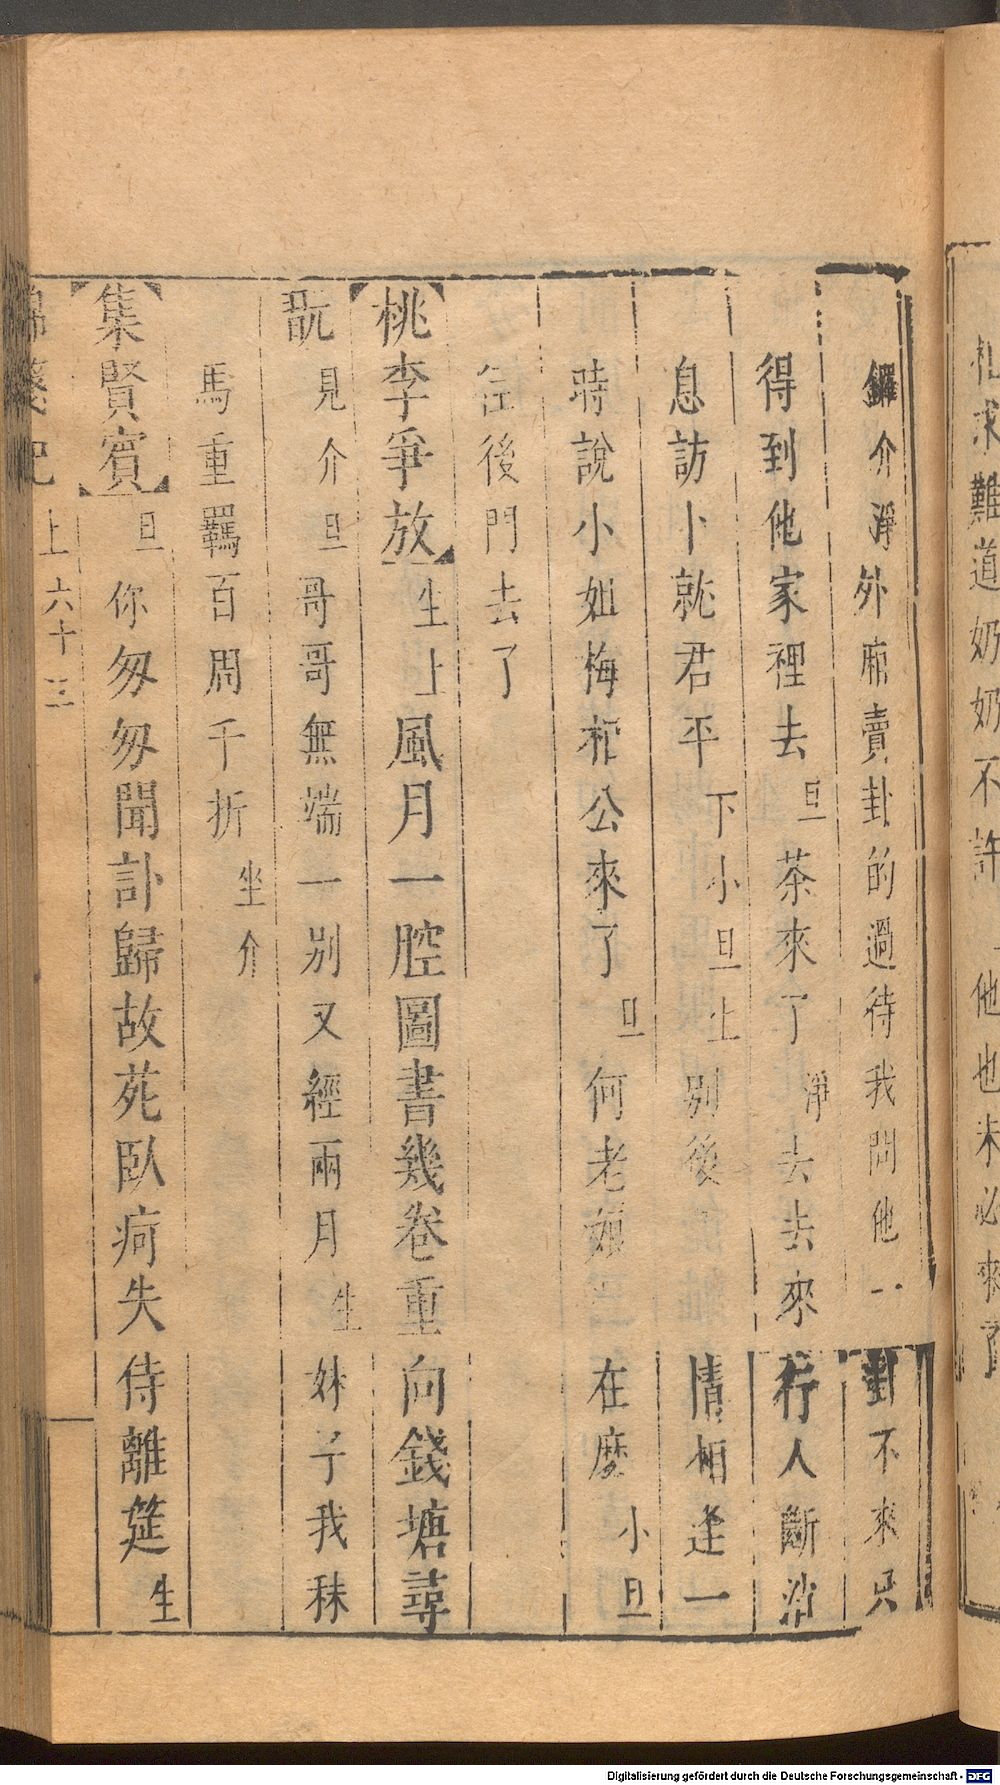 札求難道奶奶不許 他也未必來了
鑼介淨外廂賣卦的過待我問他一對不來只
得到他家裡去旦茶來了淨去去來行人斷消
息訪卜就君平下小旦上別後 情相逢一
時說小姐梅相公來了旦何老娘 在麼小旦
往後門去了
桃李爭放生上風月一腔圖書幾卷重向錢塘尋
翫見介旦哥哥無端一別又經兩月生妹子我秣
馬重羈百周千折坐介
集賢賓旦你匆匆聞訃歸故苑臥痾失侍離筵生
錦箋記 上六十三
Digitalisierung gefördert durch die Deutsche Forschungsgemeinschaft - DFG